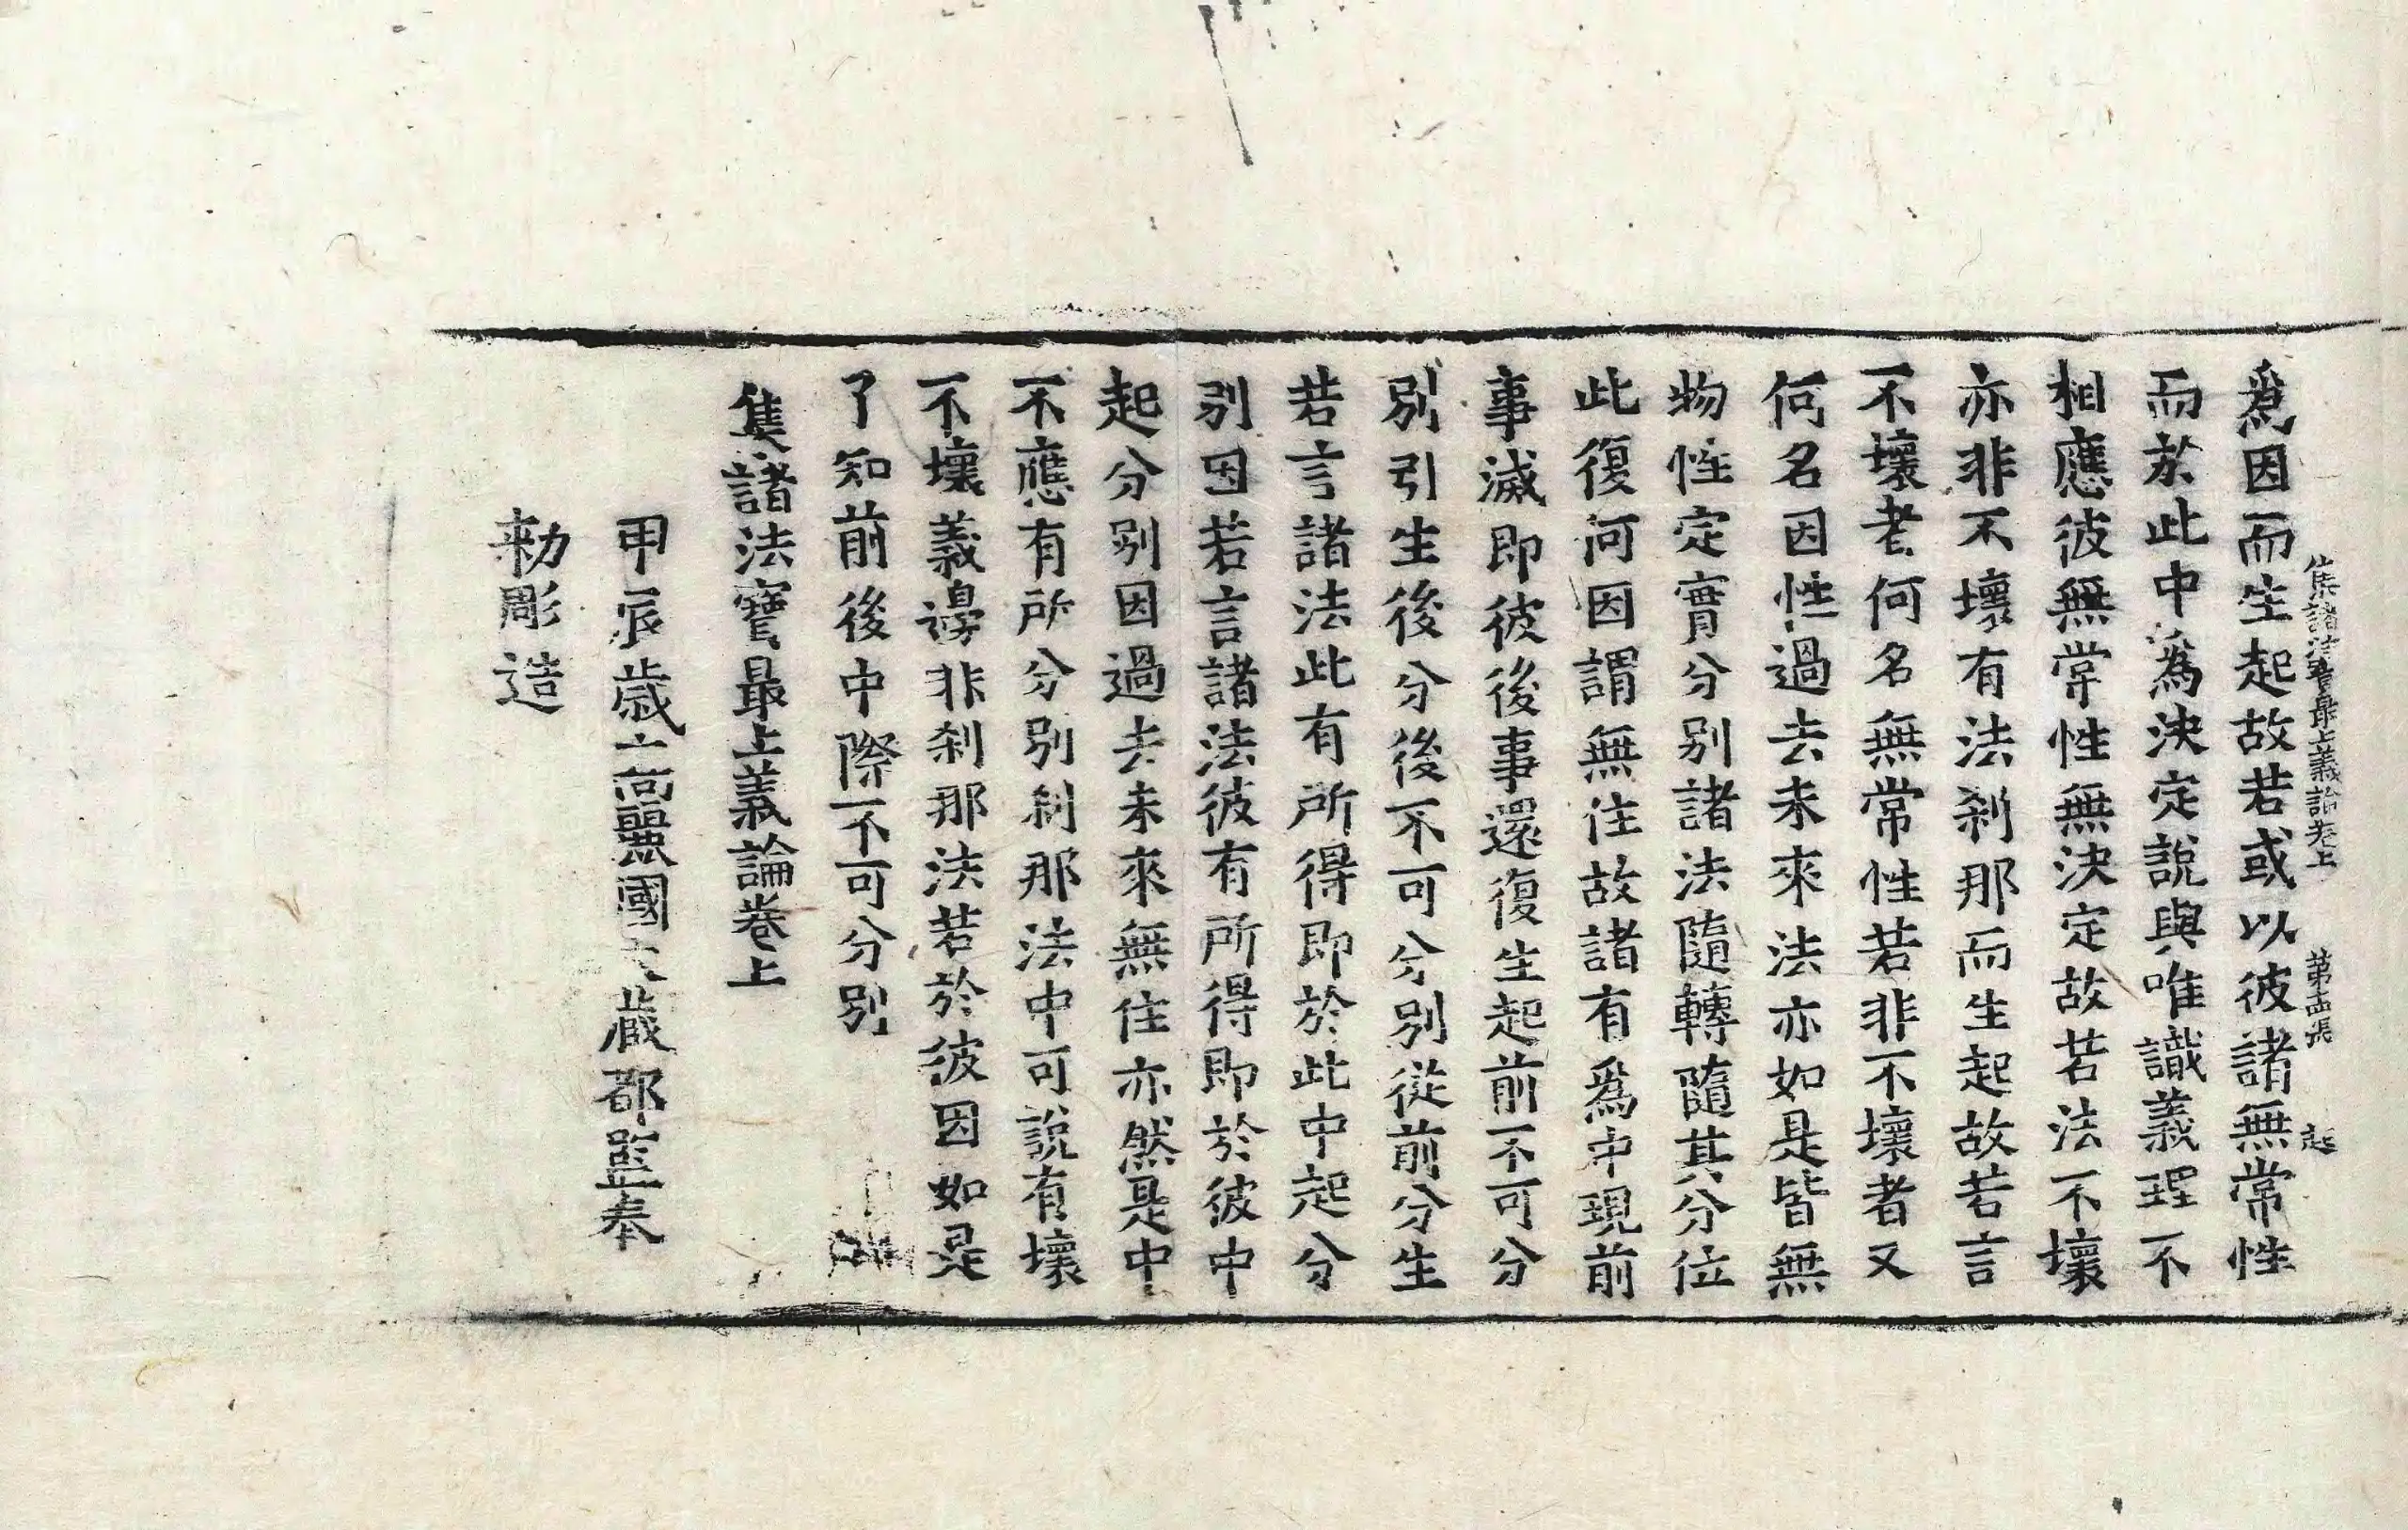 集諸法寶最上義論卷上 第十五張 起
爲因而生起故若或以彼諸無常性
而於此中爲決定說與唯識義理不
相應彼無常性無決定故若法不壞
亦非不壞有法刹那而生起故若言
不壞者何名無常性若非不壞者又
何名因性過去未來法亦如是皆無
物性定實分別諸法隨轉隨其分位
此復何因謂無住故諸有爲中現前
事滅即彼後事還復生起前不可分
別引生後分後不可分別從前分生
若言諸法此有所得即於此中起分
別因若言諸法彼有所得即於彼中
起分別因過去未來無住亦然是中
不應有所分別刹那法中可說有壞
不壞義邊非刹那法若於彼因如是
了知前後中際不可分別
集諸法寶最上義論卷上
甲辰歲高麗國大藏都監奉
勅彫造